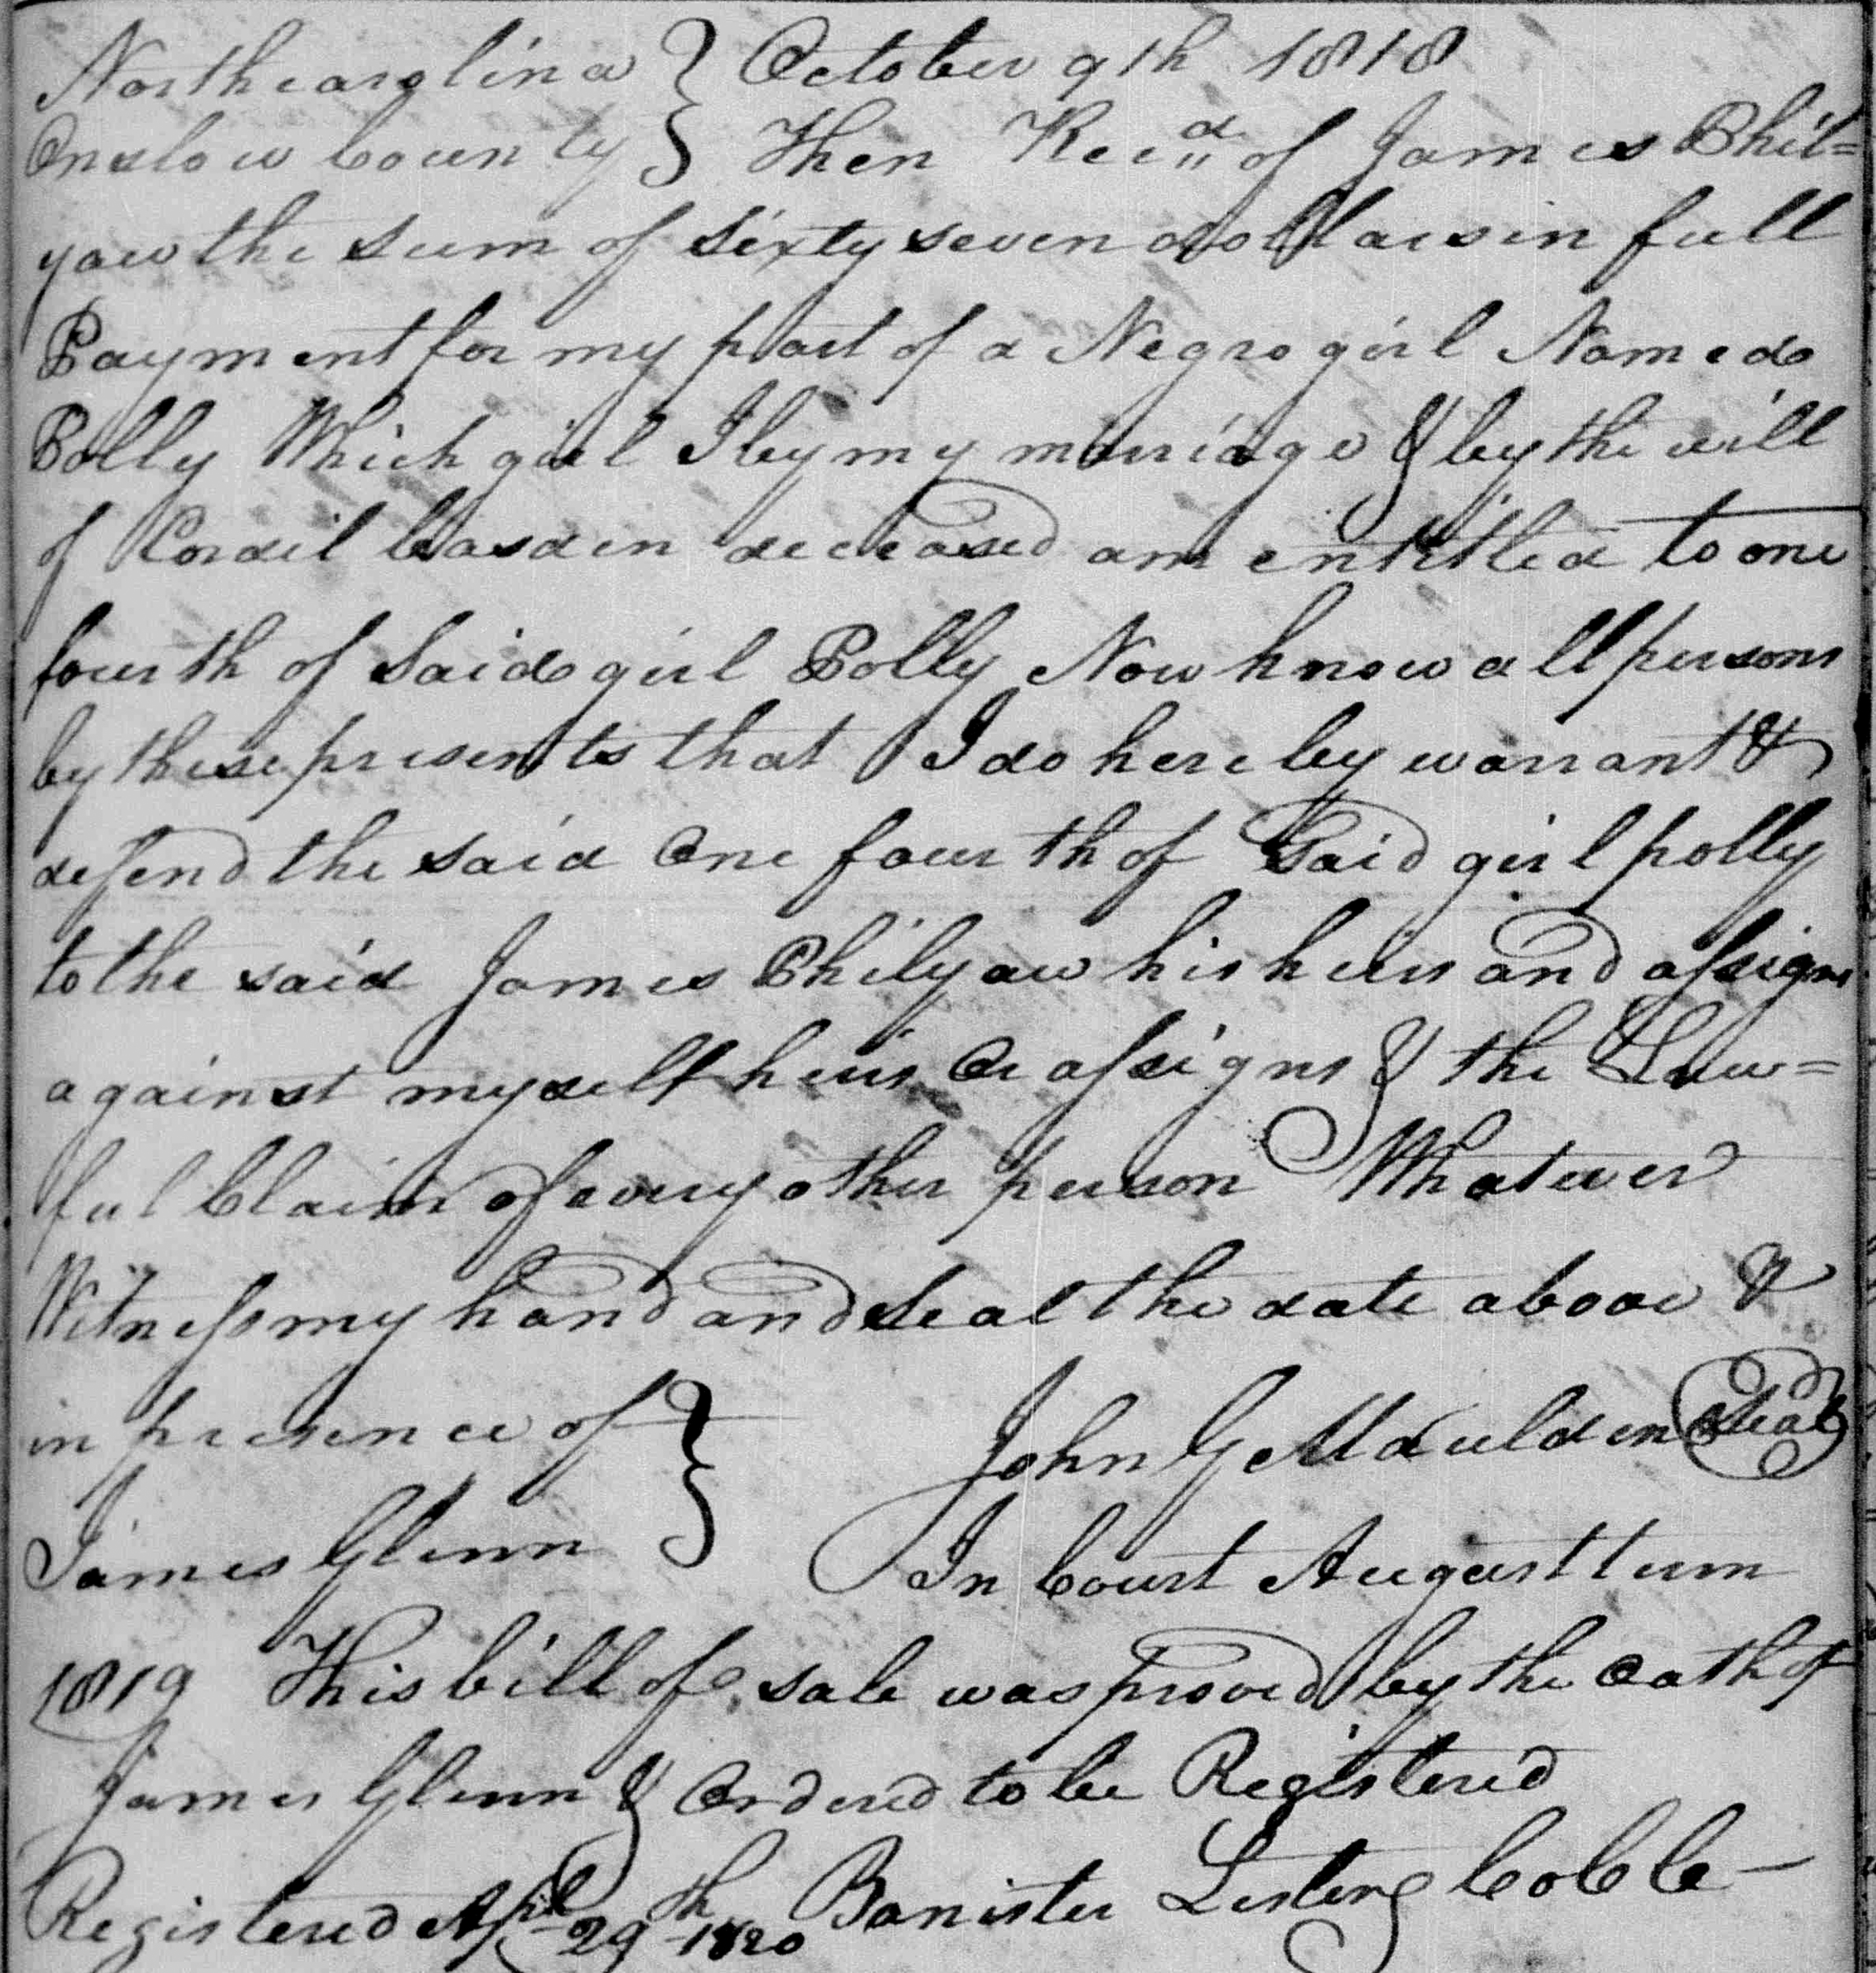 Northcarolina } October 9th 1818
Onslow County } Then Recd of James Phil=
yaw the sum of sixty seven dollars in full
Payment for my part of a Negro girl Named
Polly Which girl I by my marriage & by the will
of Cordil Casden deceased am entitled to one
fourth of Said girl Polly Now know all persons
by these presents that I do hereby warrant &
defend the said One fourth of Said girl polly
to the said James Philyaw his heirs and assigns
against myself heirs Or assigns & the Law=
ful Claim of every other person Whatever
Witness my hand and Seal the date above &
in presence of } John G Maulden Seal
James Glenn } In Court August term
1819 This bill of sale was proved by the Oath of
James Glenn & Ordered to be Registered
Registered Apl 29th 1820 Banister Lester C O C C